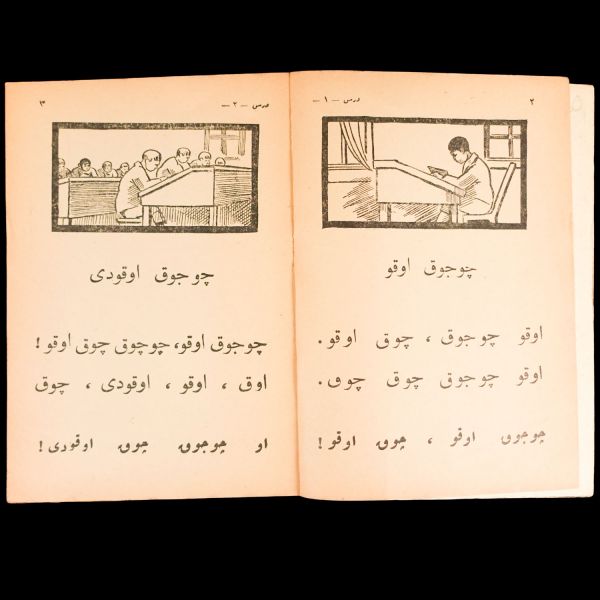 ٢
درس – ١ –
چوجوق اوقو
اوقو چوجوق ، چوق اوقو.
اوقو چوجوق چوق چوق.
چوجوق اوقو ، چوق اوقو!
درس – ٢ –
٣
چوجوق اوقودی
چوجوق اوقو، چوچوق چوق اوقو!
اوق ، اوقو ، اوقودی ، چوق
او چوجوق چوق اوقودی!